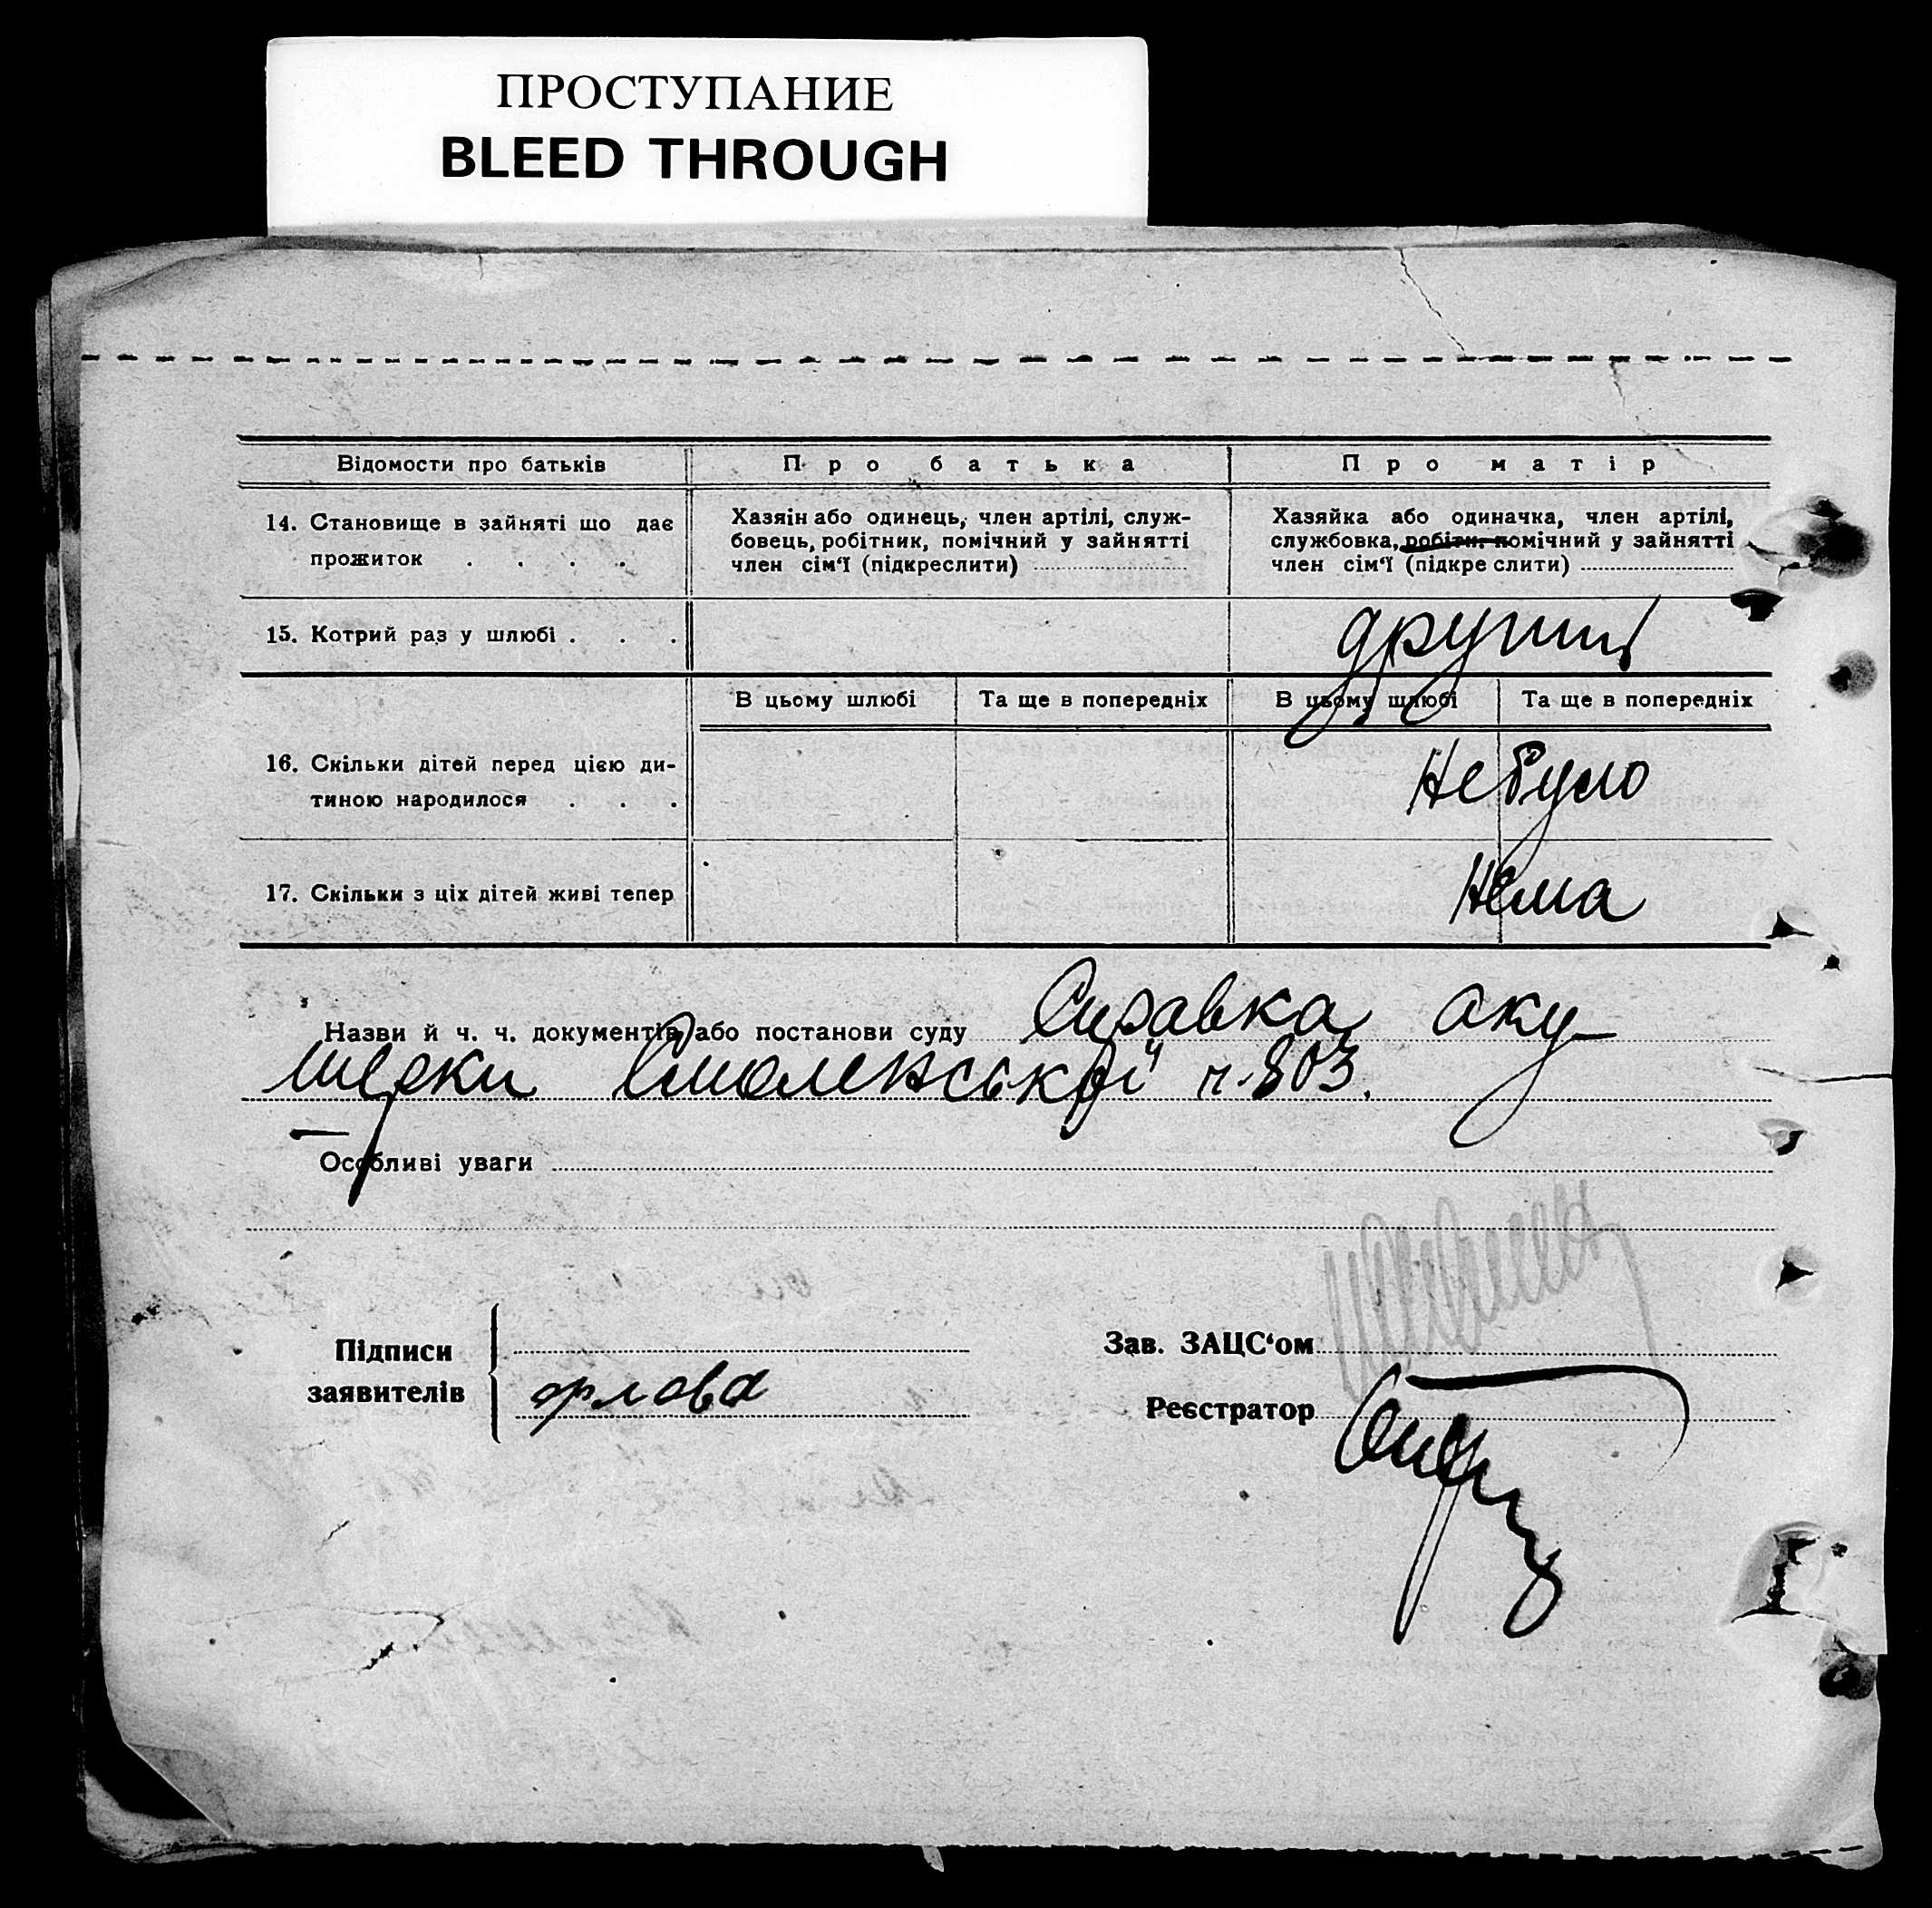 ПРОСТУПАНИЕ
BLEED THROUGH
Відомости про батьків
Про батька
Про матір
14. Становище в зайняті що дає
прожиток . . . .
Хазяїн або одинець, член артілі, служ-
бовець, робітник, помічний у зайнятті
член сім‘ї (підкреслити)
Хазяйка або одиначка, член артілі,
службовка, робітн. помічний у зайнятті
член сім‘ї (підкре слити)
15. Котрий раз у шлюбі . . .
другий
В цьому шлюбі
Та ще в попередніх
В цьому шлюбі
Та ще в попередніх
16. Скільки дітей перед цією ди-
тиною народилося . . .
Не було
17. Скільки з ціх дітей живі тепер
Нема
Назви й ч. ч. документів або постанови суду Справка аку-
шерки Смоленської ч. 803.
Особливі уваги
Підписи
заявителів
орлова
Зав. ЗАЦС‘ом
Реєстратор